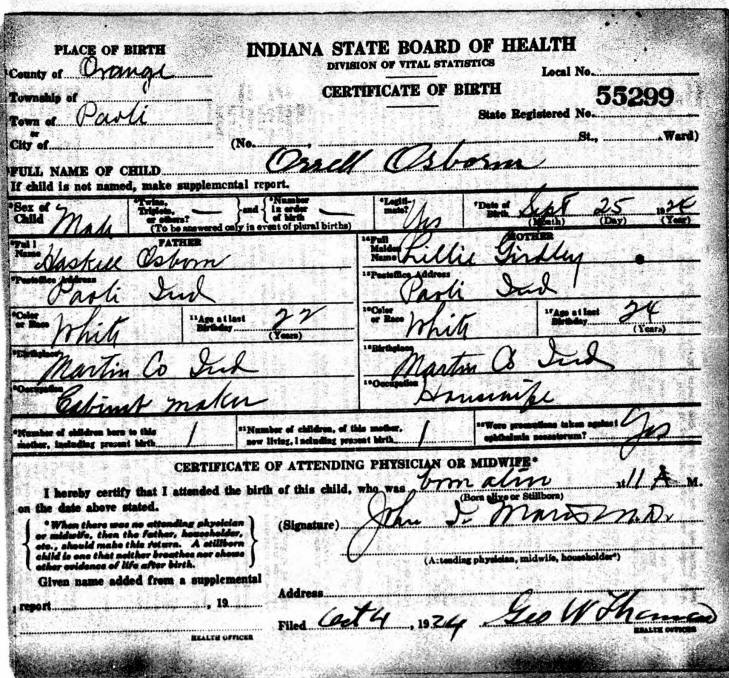 PLACE OF BIRTH
INDIANA STATE BOARD OF HEALTH
DIVISION OF VITAL STATISTICS
CERTIFICATE OF BIRTH
County of Orange
Township of
Town of Paoli
or
City of
Local No.
State Registered No. 55299
(No. , St., Ward)
FULL NAME OF CHILD Orrell Osborn
If child is not named, make supplemental report.
Sex of Child Male
Twins, Triplets, or others? — and Number in order of birth —
(To be answered only in event of plural births)
Legitimate? Yes
Date of Birth Sept 25 1924
(Month) (Day) (Year)
FATHER
Full Name Haskell Osborn
Postoffice Address
Paoli Ind
Color or Race White
Age at last Birthday 22
(Years)
Birthplace
Martin Co Ind
Occupation
Cabinet maker
MOTHER
Full Maiden Name Lillie Girdley
Postoffice Address
Paoli Ind
Color or Race White
Age at last Birthday 24
(Years)
Birthplace
Martin Co Ind
Occupation
Housewife
Number of children born to this mother, including present birth 1
Number of children, of this mother, now living, including present birth 1
Were precautions taken against ophthalmia neonatorum? Yes
CERTIFICATE OF ATTENDING PHYSICIAN OR MIDWIFE*
I hereby certify that I attended the birth of this child, who was born alive at 11 A M.
(Born alive or Stillborn)
on the date above stated.
*When there was no attending physician
or midwife, then the father, householder,
etc., should make this return. A stillborn
child is one that neither breathes nor shows
other evidence of life after birth.
(Signature) John M.D.
(Attending physician, midwife, householder*)
Given name added from a supplemental
report , 19
HEALTH OFFICER
Address
Filed Oct 4, 1924 Geo W Thomas
HEALTH OFFICER